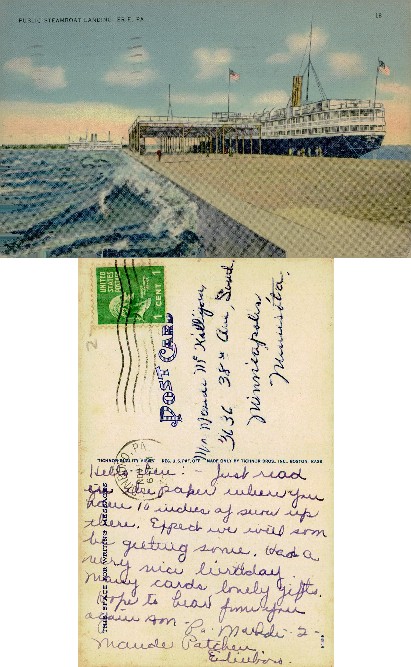 PUBLIC STEAMBOAT LANDING, ERIE, PA. 18
UNITED STATES POSTAGE
1 CENT 1
POST CARD
3636 38th Ave, Soud.
Minneapolis
Minnesota.
TICHNOR QUALITY VIEWS REG. U.S. PAT. OFF. MADE ONLY BY TICHNOR BROS., INC., BOSTON, MASS.
THIS SPACE FOR WRITING MESSAGES
PA
Hello there: Just read
in the paper where you
have 16 inches of snow up
there. Expect we will soon
be getting some. Had a
very nice birthday
many cards lovely gifts.
Hope to hear from you
again soon
Maude Patchen
Edinboro